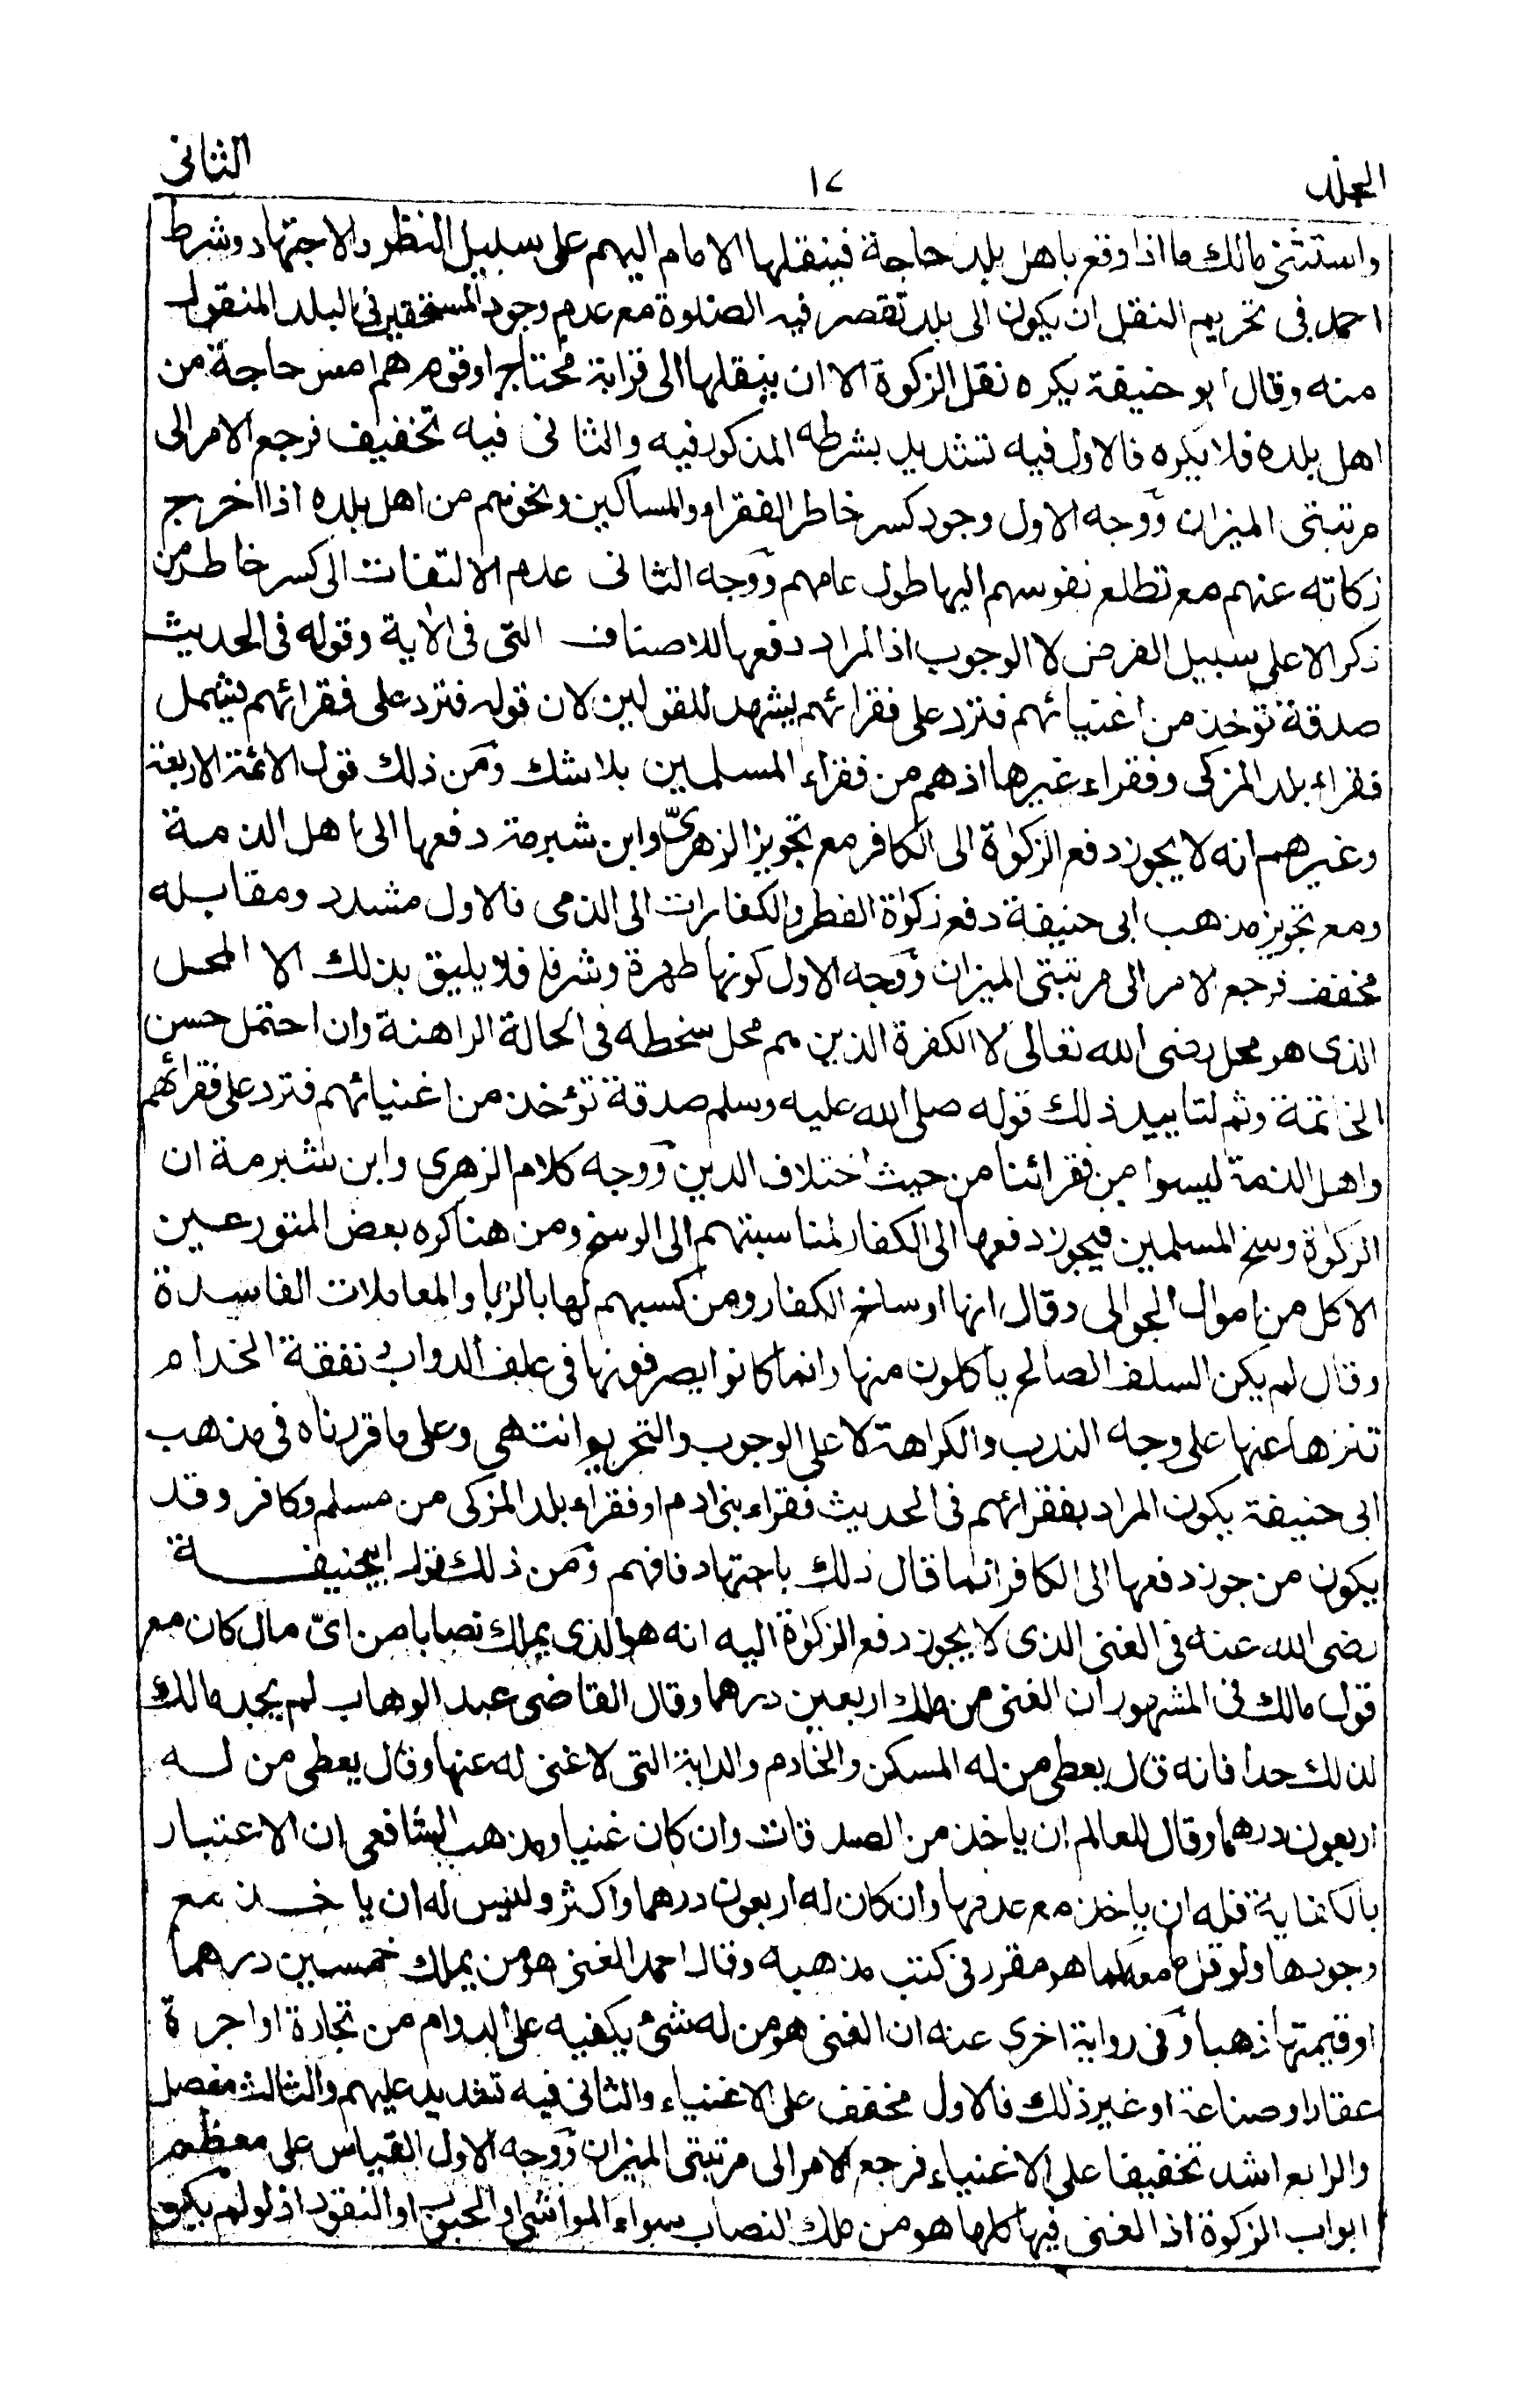 الجلد ١٧ الثانى
واستثنى مالك ما اذا وقع باهل بلد حاجة فينقلها الامام اليهم على سبيل النظر والاجتهاد وشرط
احمد فى تحريم النقل ان يكون الى بلد تقصر فيه الصلوة مع عدم وجود المستحقين فى البلد المنقول
منه وقال ابو حنيفة يكره نقل الزكوة الا ان ينقلها الى قرابة محتاج اوقوم هم امس حاجة من
اهل بلده فلا يكره فالاول فيه تشديد بشرطه المذكور فيه والثانى فيه تخفيف فرجع الامر الى
مرتبتى الميزان ووجه الاول وجود كسر خاطر الفقراء والمساكين ونحوهم من اهل بلده اذا اخرج
زكاته عنهم مع تطلع نفوسهم اليها طول عامهم ووجه الثانى عدم الالتفات الى كسر خاطر من
ذكر الا على سبيل الفرض لا الوجوب اذ المراد دفعها للاصناف التى فى الاية وقوله فى الحديث
صدقة تؤخذ من اغنيائهم فترد على فقرائهم يشهد للقولين لان قوله فترد على فقرائهم يشمل
فقراء بلد المزكى وفقراء غيرها اذ هم من فقراء المسلمين بلا شك ومن ذلك قول الائمة الاربعة
وغيرهم انه لا يجوز دفع الزكوٰة الى الكافر مع تجويز الزهرىّ وابن شبرمة دفعها الى اهل الذمة
ومع تجويز مذهب ابى حنيفة دفع زكوٰة الفطر والكفارات الى الذمى فالاول مشدد ومقابله
مخفف فرجع الامر الى مرتبتى الميزان ووجه الاول كونها طهرة وشرفا فلا يليق بذلك الا المحل
الذى هو محل رضى الله تعالى لا الكفرة الذين هم محل سخطه فى الحالة الراهنة وان احتمل حسن
الخاتمة وثم لتاييد ذلك قوله صلى الله عليه وسلم صدقة تؤخذ من اغنيائهم فترد على فقرائهم
واهل الذمة ليسوا من فقرائنا من حيث اختلاف الدين ووجه كلام الزهرى وابن شبرمة ان
الزكوٰة وسخ المسلمين فيجوز دفعها الى الكفار لمناسبتهم الى الوسخ ومن هنا كره بعض المتورعين
الاكل من اموال الجوالى وقال انها اوساخ الكفار ومن كسبهم لها بالربا والمعاملات الفاسدة
وقال لم يكن السلف الصالح يأكلون منها وانما كانوا يصرفونها فى علف الدواب ونفقة الخدام
تنزها عنها على وجه الندب والكراهة لا على الوجوب والتحريم انتهى وعلى ما قررناه فى مذهب
ابى حنيفة يكون المراد بفقرائهم فى الحديث فقراء بنى ادم او فقراء بلد المزكى من مسلم وكافر وقد
يكون من جوز دفعها الى الكافر انما قال ذلك باجتهاد فافهم ومن ذلك قول ابيحنيفة
رضى الله عنه فى الغنى الذى لا يجوز دفع الزكوٰة اليه انه هو الذى يملك نصابا من اىّ مال كان مع
قول مالك فى المشهور ان الغنى من ملك اربعين درهما وقال القاضى عبد الوهاب لم يجد مالك
لذلك حدا فانه قال يعطى من له المسكن والخادم والدابة التى لا غنى له عنها وقال يعطى من له
اربعون درهما وقال للعالم ان ياخذ من الصدقات وان كان غنيا ومذهب الشافعى ان الاعتبار
بالكفاية فله ان ياخذ مع عدمها وان كان له اربعون درهما واكثر وليس له ان ياخذ مع
وجودها ولو قل ما معه كما هو مقرر فى كتب مذهبه وقال احمد الغنى هو من يملك خمسين درهما
او قيمتها ذهبا وفى رواية اخرى عنه ان الغنى هو من له شئ يكفيه على الدوام من تجارة او اجرة
عقار او صناعة او غير ذلك فالاول مخفف على الاغنياء والثانى فيه تشديد عليهم والثالث مفصل
والرابع اشد تخفيفا على الاغنياء فرجع الامر الى مرتبتى الميزان ووجه الاول القياس على معظم
ابواب الزكوة اذ الغنى فيها كلها هو من ملك النصاب سواء المواشى او الحبوب او النقود اذ لو لم يكن